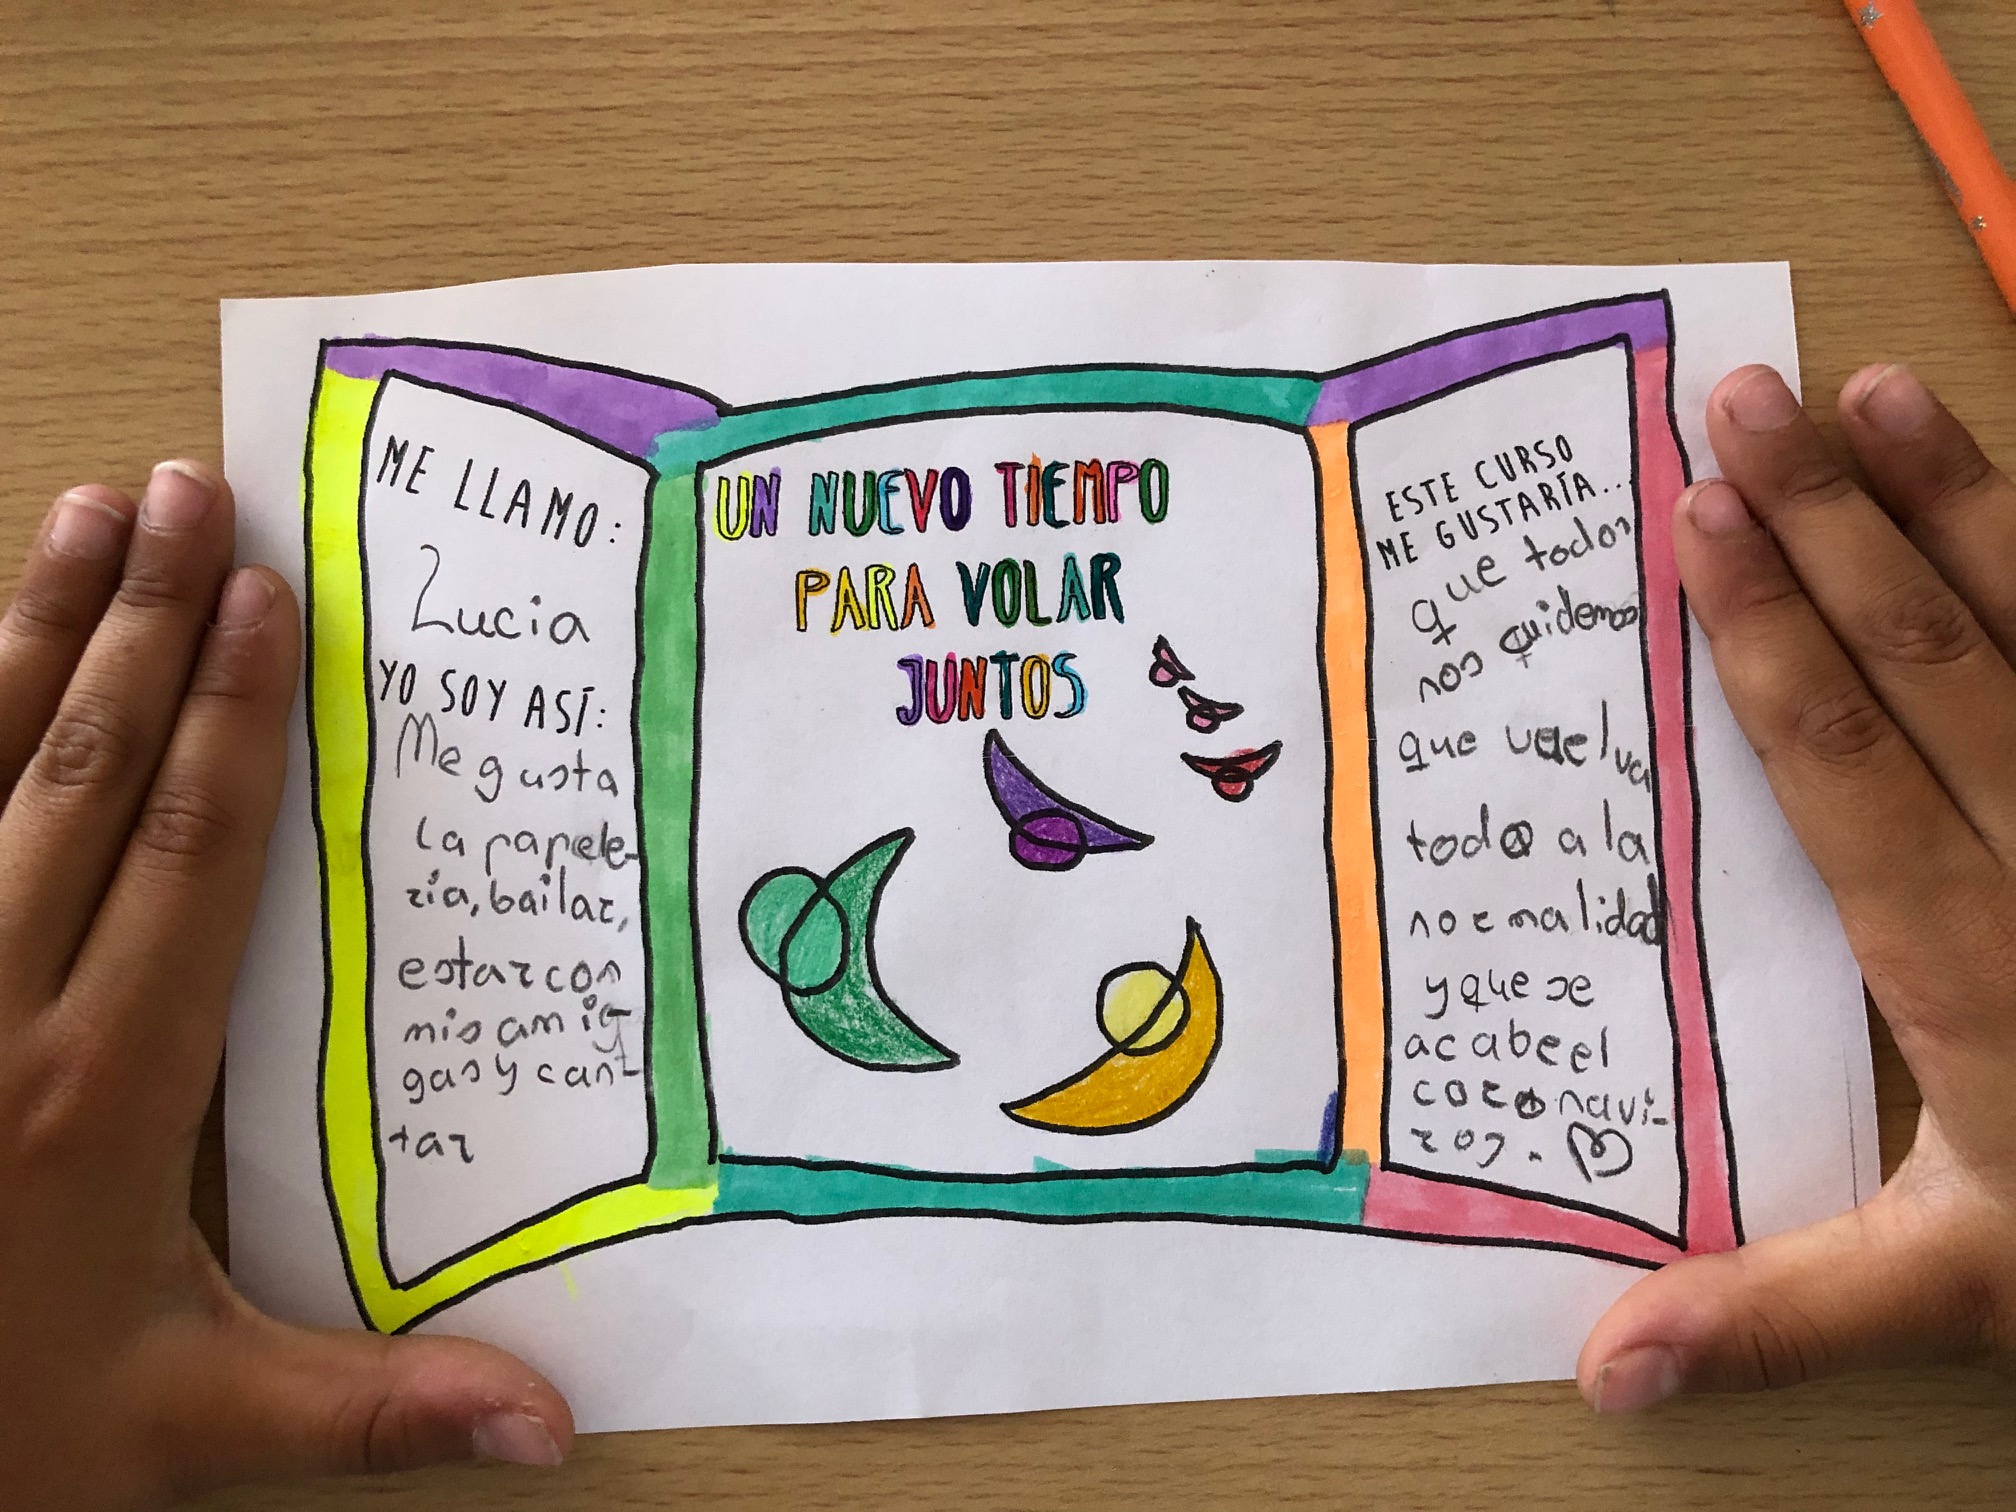 ME LLAMO:
Lucia
YO SOY ASÍ:
Me gusta
la papele-
ria, bailar,
estar con
mis amig-
gas y can-
tar
UN NUEVO TIEMPO
PARA VOLAR
JUNTOS
ESTE CURSO
ME GUSTARÍA...
que todos
nos quidemos
que vuelva
todo a la
normalidad
y que se
acabe el
coronavi-
ros.